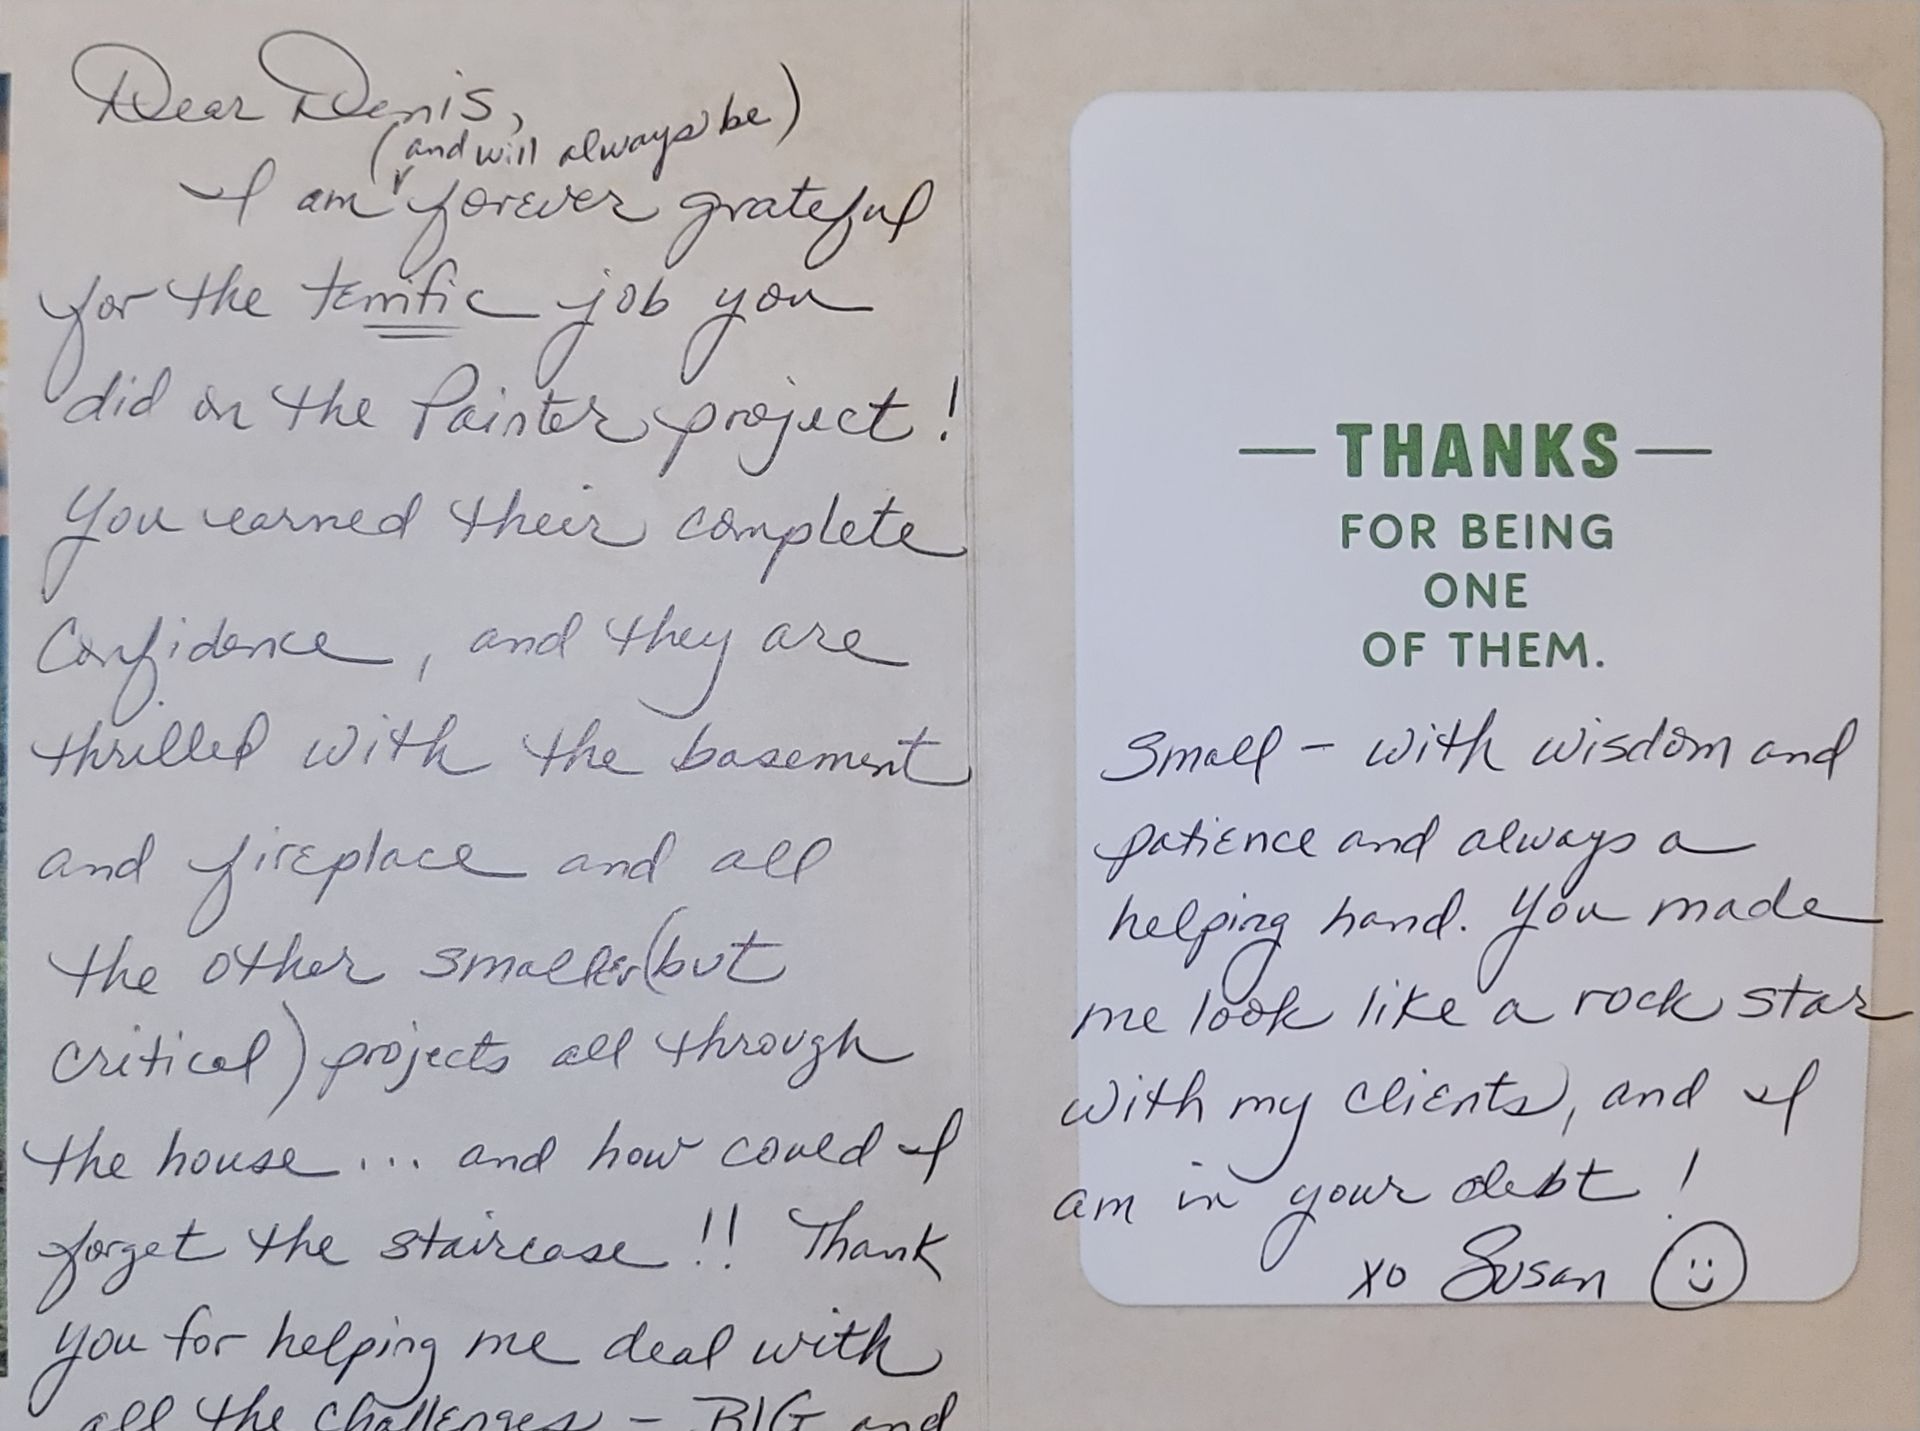 Dear Denis,
(and will always be)
I am forever grateful
for the terrific job you
did on the Painter project!
You earned their complete
Confidence, and they are
thrilled with the basement
and fireplace and all
the other smaller (but
critical) projects all through
the house ... and how could I
forget the staircase!! Thank
you for helping me deal with
all the challenges - BIG and
— THANKS —
FOR BEING
ONE
OF THEM.
Small - with wisdom and
patience and always a
helping hand. You made
me look like a rock star
with my clients, and I
am in your debt!
xo Susan